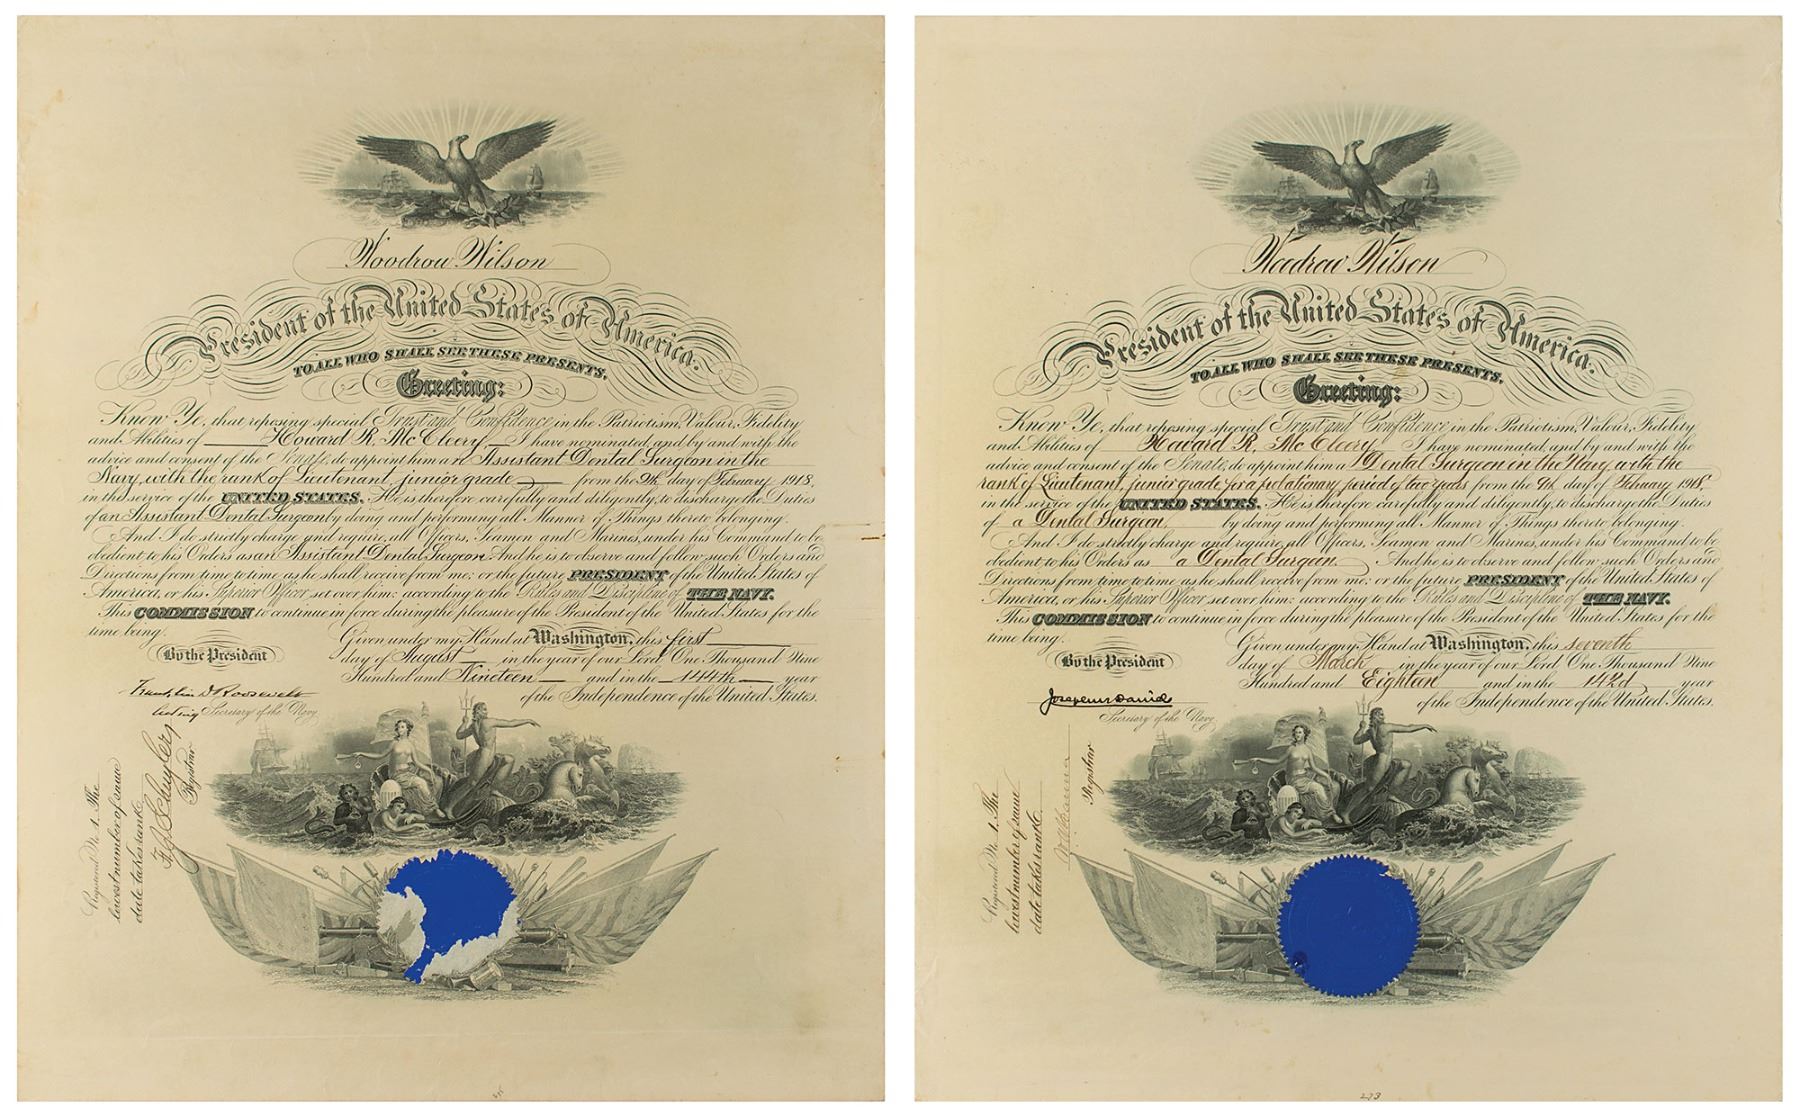 Woodrow Wilson
President of the United States of America.
TO ALL WHO SHALL SEE THESE PRESENTS,
Greeting:
Know Ye, that reposing special Trust and Confidence in the Patriotism, Valour, Fidelity
and Abilities of Howard R. McCleery I have nominated, and by and with the
advice and consent of the Senate, do appoint him an Assistant Dental Surgeon in the
Navy, with the rank of Lieutenant, junior grade from the 9th day of February 1918,
in the service of the UNITED STATES. He is therefore carefully and diligently, to discharge the Duties
of an Assistant Dental Surgeon by doing and performing all Manner of Things thereto belonging.
And I do strictly charge and require all Officers, Seamen and Marines, under his Command to be
obedient to his Orders as an Assistant Dental Surgeon And he is to observe and follow such Orders and
Directions from time to time as he shall receive from me; or the future PRESIDENT of the United States of
America, or his Superior Officer set over him; according to the Rules and Discipline of THE NAVY.
This COMMISSION to continue in force during the pleasure of the President of the United States for the
time being.
Given under my Hand at Washington, this first
By the President
day of August in the year of our Lord One Thousand Nine
Hundred and Nineteen and in the 144th year
of the Independence of the United States.
Franklin D Roosevelt
acting Secretary of the Navy
Registrar
Registered No. 1. The
lowest number of same
date takes rank.
Woodrow Wilson
President of the United States of America.
TO ALL WHO SHALL SEE THESE PRESENTS,
Greeting:
Know Ye, that reposing special Trust and Confidence in the Patriotism, Valour, Fidelity
and Abilities of Howard R. McCleery I have nominated, and by and with the
advice and consent of the Senate, do appoint him a Dental Surgeon in the Navy with the
rank of Lieutenant, junior grade for a probationary period of two years from the 9th day of February 1918,
in the service of the UNITED STATES. He is therefore carefully and diligently, to discharge the Duties
of a Dental Surgeon by doing and performing all Manner of Things thereto belonging.
And I do strictly charge and require all Officers, Seamen and Marines, under his Command to be
obedient to his Orders as a Dental Surgeon And he is to observe and follow such Orders and
Directions from time to time as he shall receive from me; or the future PRESIDENT of the United States of
America, or his Superior Officer set over him; according to the Rules and Discipline of THE NAVY.
This COMMISSION to continue in force during the pleasure of the President of the United States for the
time being.
Given under my Hand at Washington, this seventh
By the President
day of March in the year of our Lord One Thousand Nine
Hundred and Eighteen and in the 142d year
of the Independence of the United States.
Josephus Daniels
Secretary of the Navy
Registrar
Registered No. 1. The
lowest number of same
date takes rank.